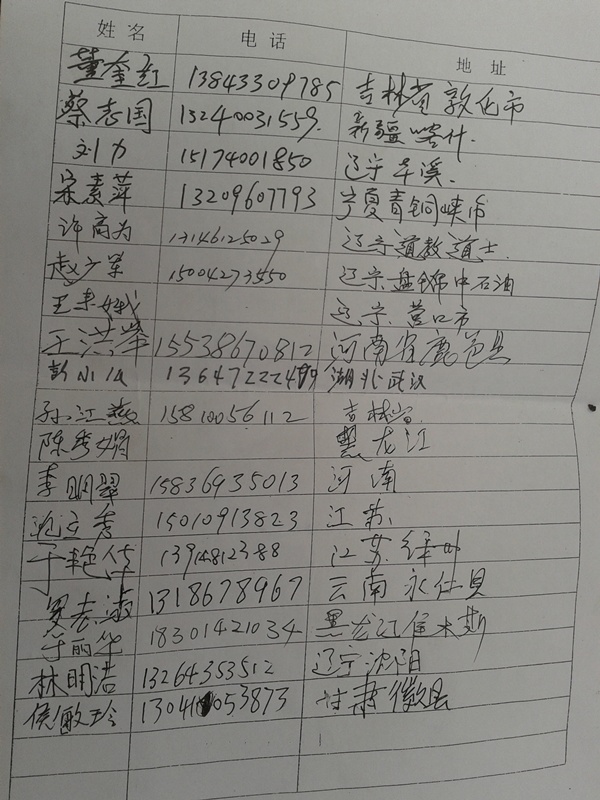 姓名 电话 地址
董奎红 13843309785 吉林省敦化市
蔡志国 13240031559. 新疆喀什.
刘力 15174001850 辽宁本溪.
宋素萍 13209607793 宁夏青铜峡市
许高为 13146125029 辽宁道教道士.
赵广军 15004273550 辽宁.盘锦市中石油
王 辽宁.营口市
于洪举 15538670812 河南省鹿邑县
彭小 湖北武汉
孙江燕 15810056112 吉林省.
陈秀娟 黑龙江
李明翠 15836935013 河南
沈立秀 15010913823 江苏
于艳 1394812388 江苏徐州
罗志淑 1318678967 云南永仁县
于丽华 18301421034 黑龙江佳木斯
林明浩 13264353512 辽宁沈阳
侯敏玲 甘肃徽县